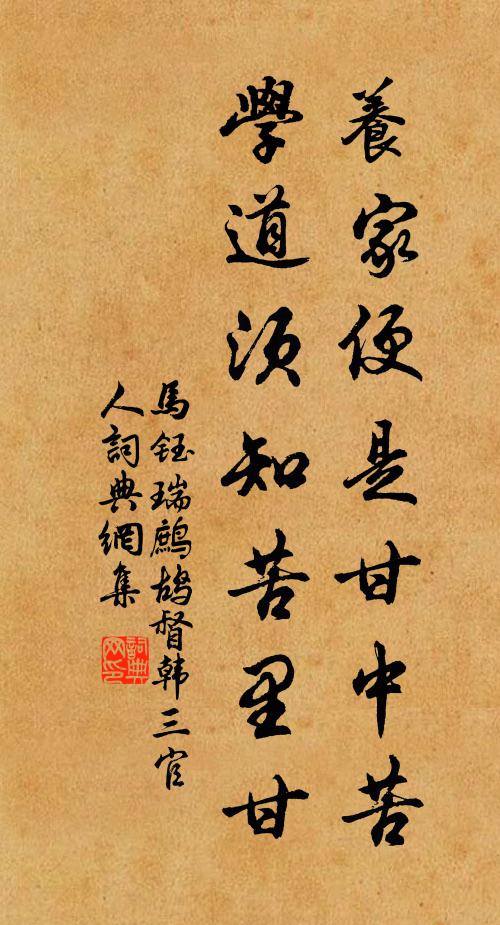 養家便是甘中苦
學道須知苦里甘
馬鈺瑞鷓鴣督韩三官
人詞典網集
詞典
网印